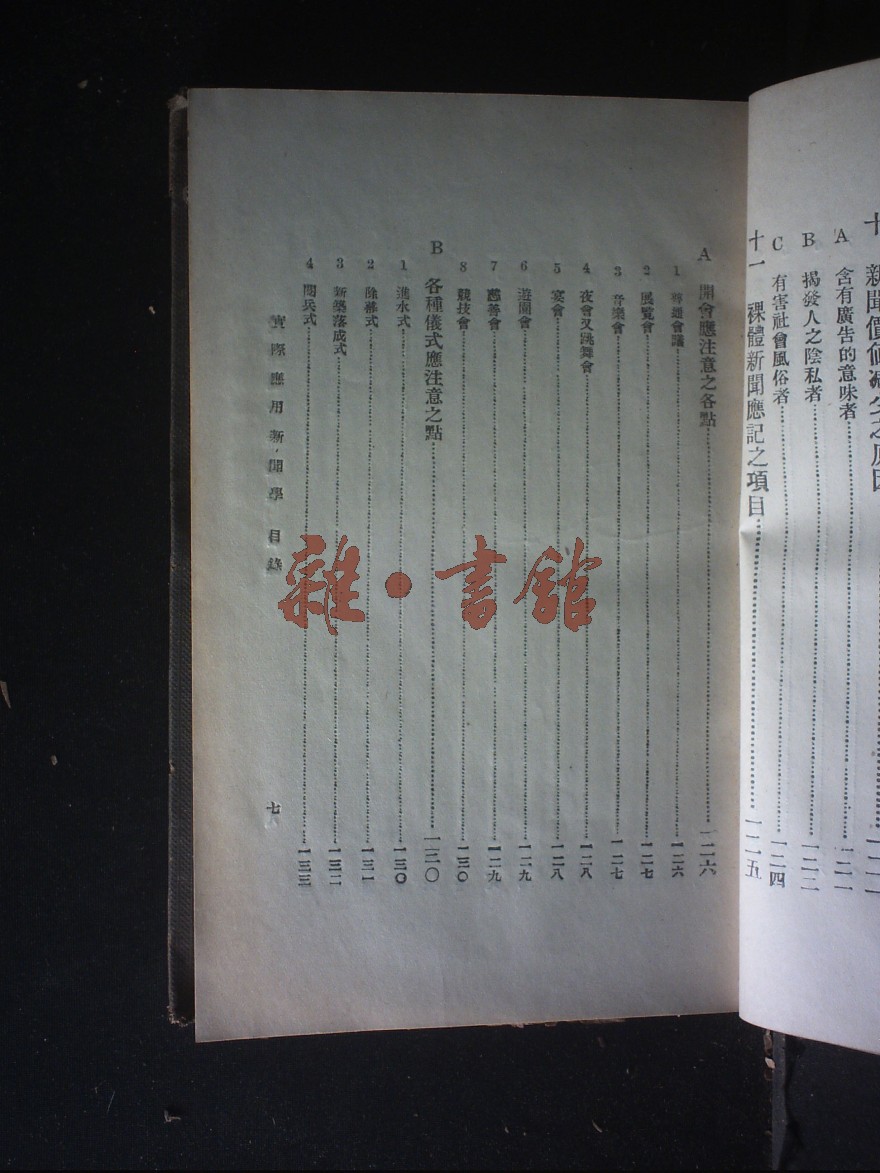 A 含有廣告的意味者……一二一
B 揭發人之陰私者……一二二
C 有害社會風俗者……一二四
十一 裸體新聞應記之項目……一二五
A 開會應注意之各點……一二六
1 普通會議……一二六
2 展覧會……一二七
3 音樂會……一二七
4 夜會又跳舞會……一二八
5 宴會……一二八
6 遊園會……一二九
7 慈善會……一二九
8 競技會……一三〇
B 各種儀式應注意之點……一三〇
1 進水式……一三〇
2 除幕式……一三一
3 新築落成式……一三二
4 閱兵式……一三三
實際應用新聞學 目錄
七
雜·書館